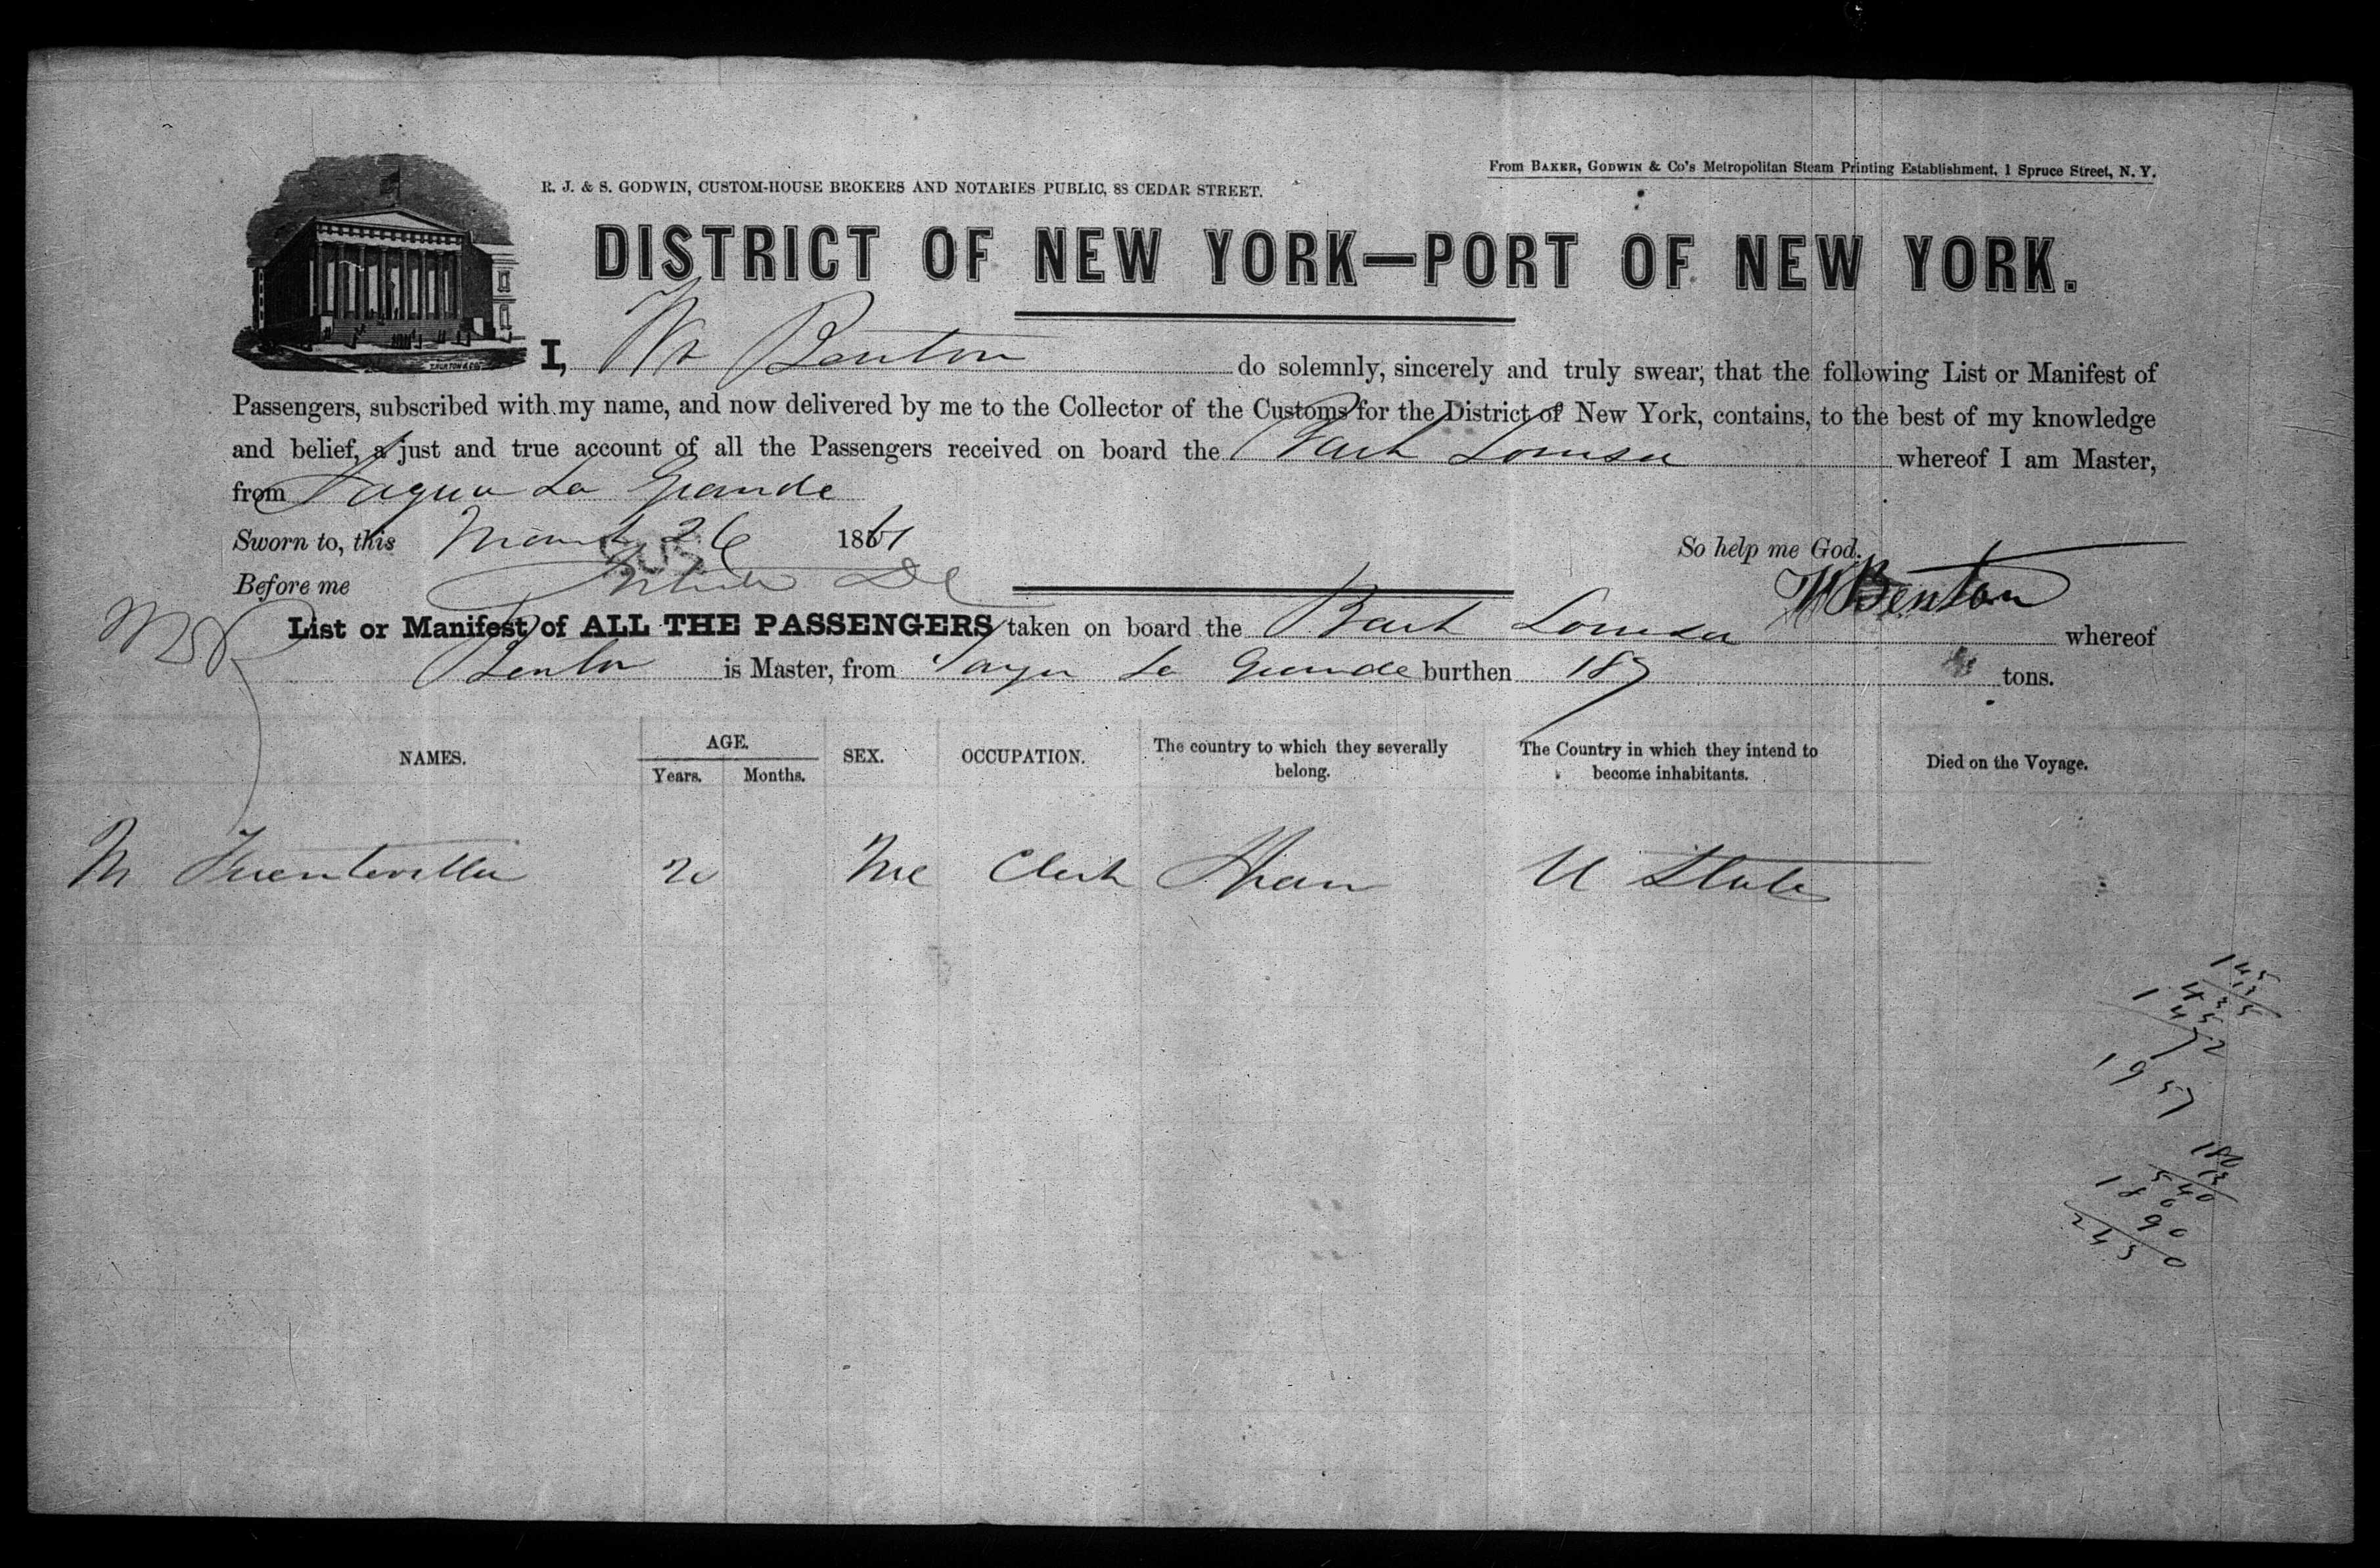 From BAKER, GODWIN & Co's Metropolitan Steam Printing Establishment, 1 Spruce Street, N. Y.
R. J. & S. GODWIN, CUSTOM-HOUSE BROKERS AND NOTARIES PUBLIC, 88 CEDAR STREET.
DISTRICT OF NEW YORK—PORT OF NEW YORK.
I, Wm Benton do solemnly, sincerely and truly swear, that the following List or Manifest of
Passengers, subscribed with my name, and now delivered by me to the Collector of the Customs for the District of New York, contains, to the best of my knowledge
and belief, a just and true account of all the Passengers received on board the Bark Louisa whereof I am Master,
from Sagua La Grande
Sworn to, this March 26 1861 So help me God.
Before me W Benton
List or Manifest of ALL THE PASSENGERS taken on board the Bark Louisa whereof
Benton is Master, from Sagua La Grande burthen 187 tons.
NAMES. AGE. SEX. OCCUPATION. The country to which they severally belong. The Country in which they intend to become inhabitants. Died on the Voyage.
Years. Months.
M Fuentevilla 20 Me Clerk Spain U States
145
13
435
145
72
1957
180
13
540
180
90
2430